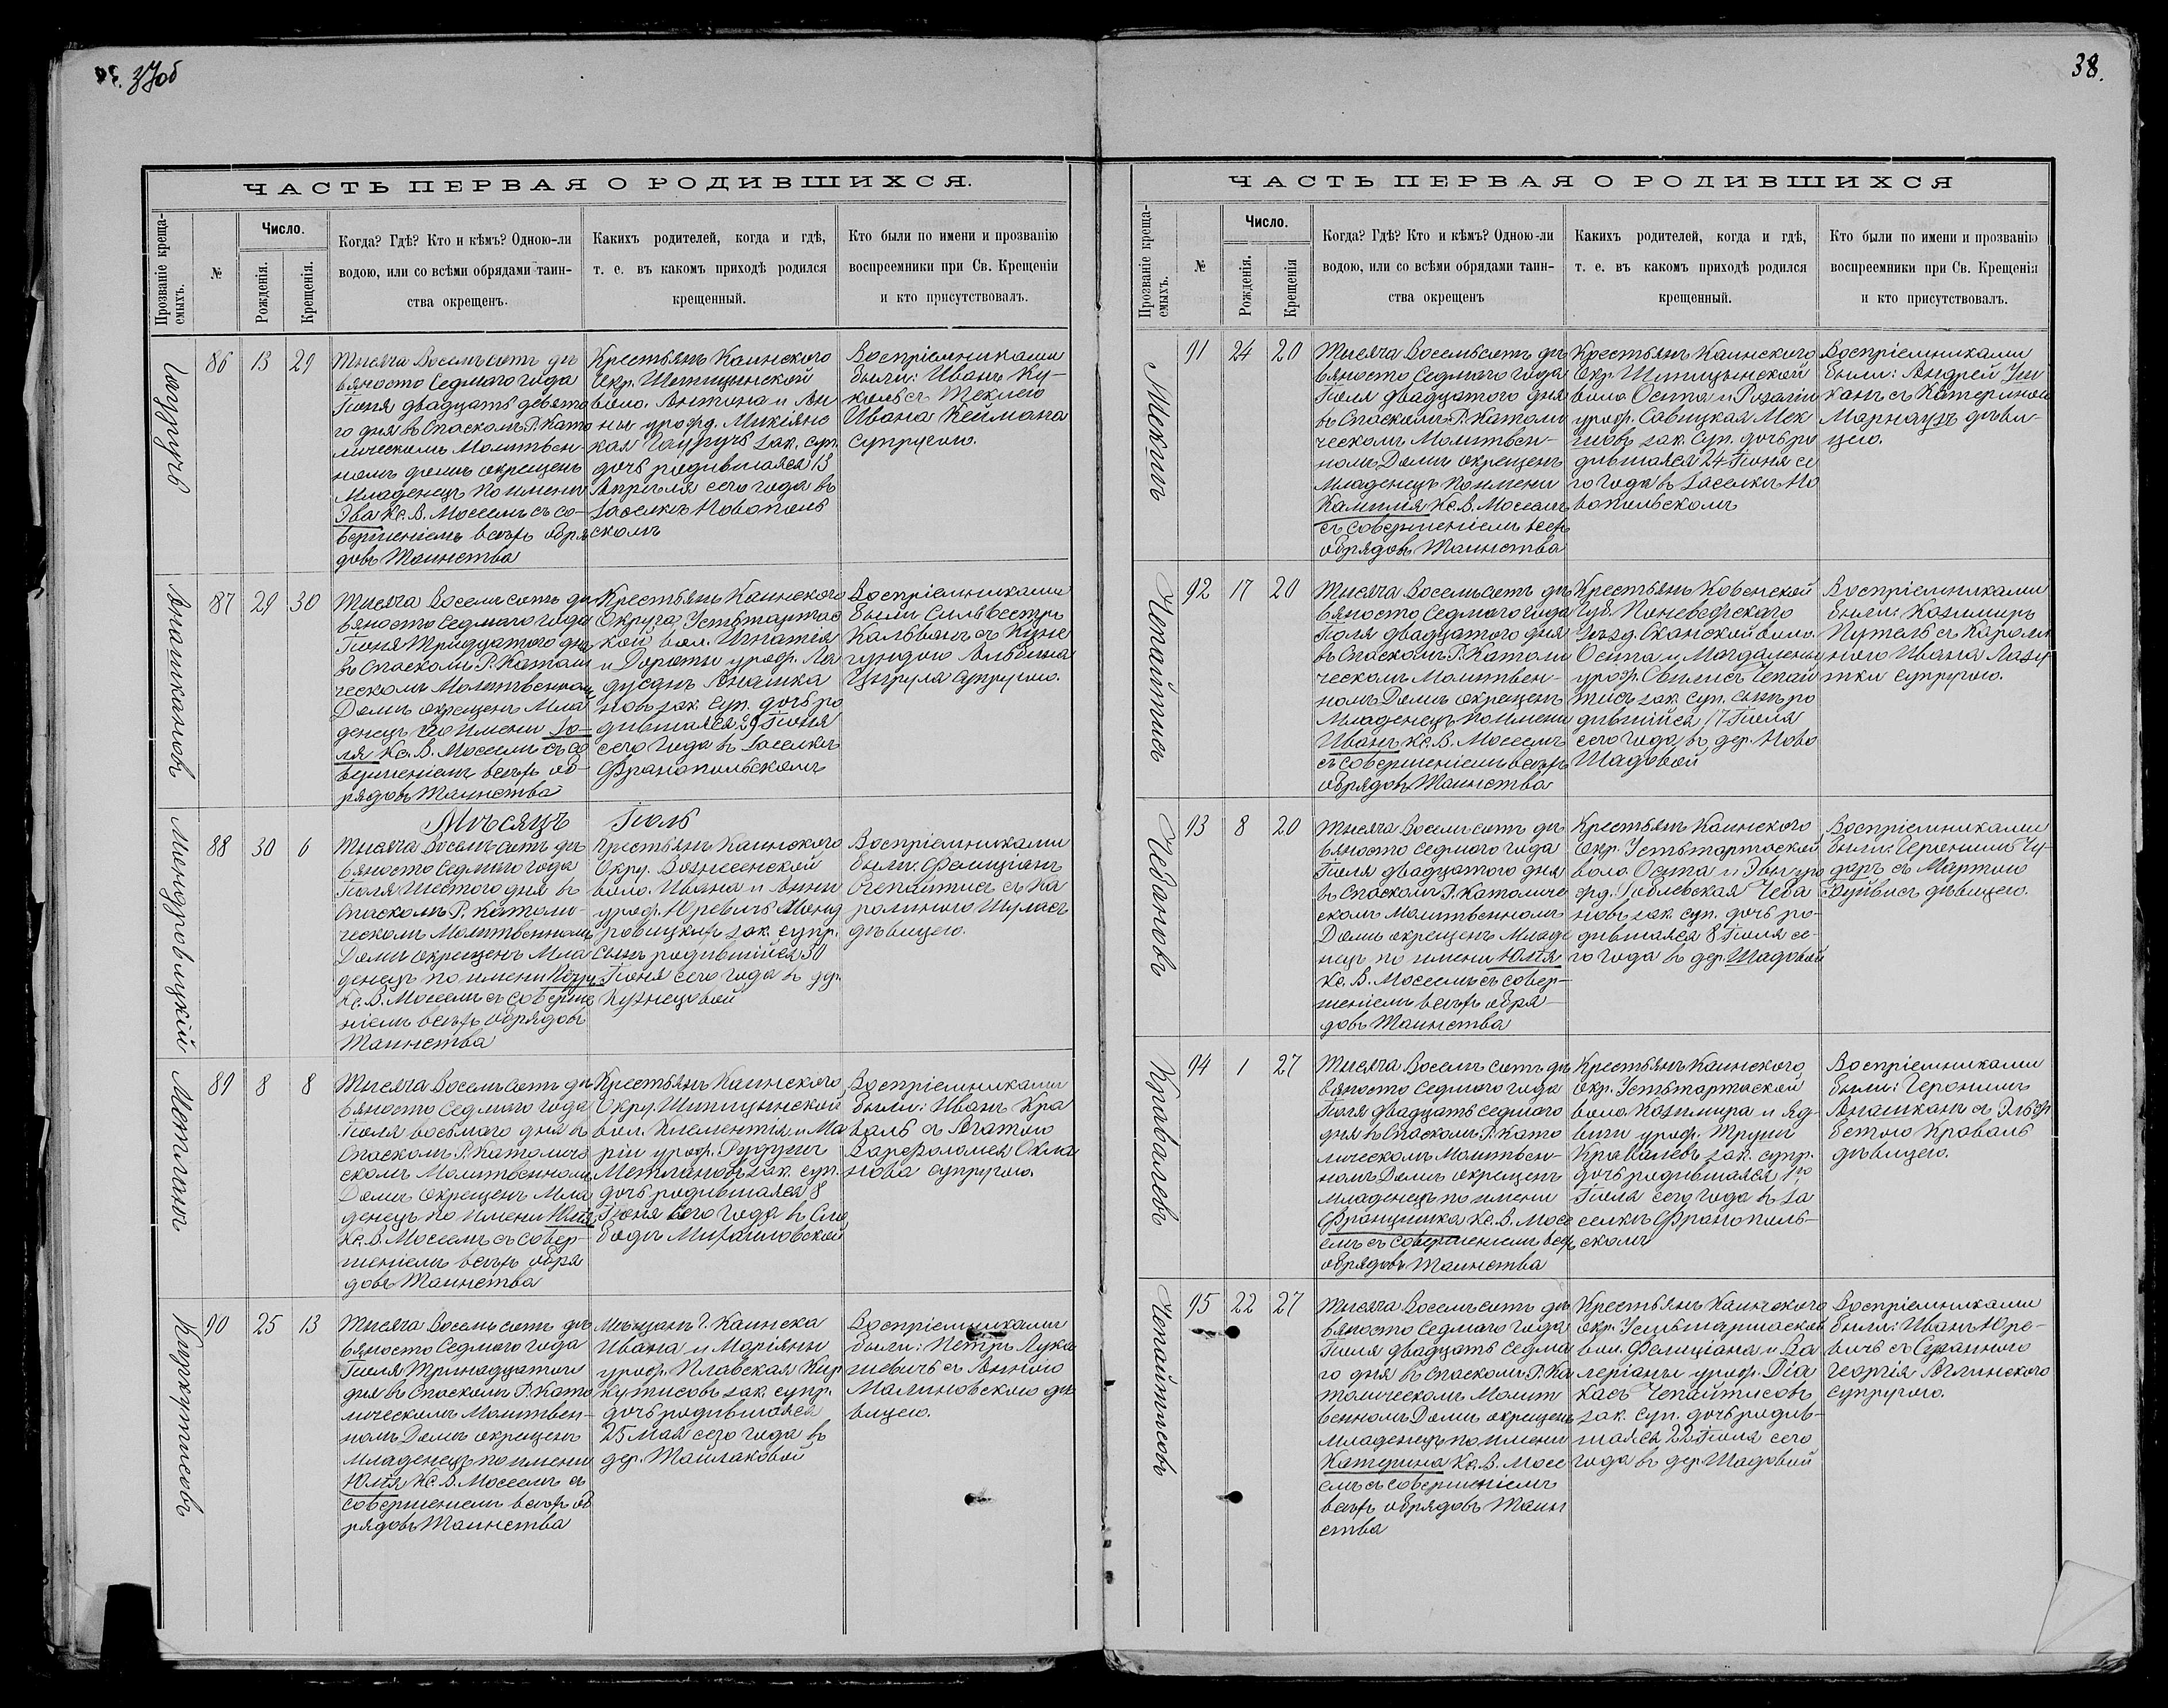 37об
38.
ЧАСТЬ ПЕРВАЯ О РОДИВШИХСЯ.
Прозваніе креща-
емыхъ.
№
Число.
Рожденія.
Крещенія.
Когда? Гдѣ? Кто и кѣмъ? Одною-ли
водою, или со всѣми обрядами таин-
ства окрещенъ.
Какихъ родителей, когда и гдѣ,
т. е. въ какомъ приходѣ родился
крещенный.
Кто были по имени и прозванію
воспреемники при Св. Крещеніи
и кто присутствовалъ.
86 13 29
Тысяча Восемьсотъ де
вяносто Седмаго года
Іюня двадцать девято
го дня въ Спаскомъ Р. Като
лическомъ Молитвен-
номъ домѣ окрещенъ
Младенецъ по имени
Эва Кс. В. Моссемъ съ со-
вершеніемъ всѣхъ обря
довъ Таинства
Крестьянъ Каинскаго
Окр. Шипицынской
воло. Антона и Ан
ны урожд.
зак. суп.
дочь родившаяся 13
Апрѣля сего года въ
заселкѣ Новополь
скомъ
Воспріемниками
были: Иванъ Ку-
коль съ Теклею
Ивана Неймана
супругою.
87 29 30
Тысяча Восемьсотъ де
вяносто Седмаго года
Іюня Тридцатаго дня
въ Спаскомъ Р. Католи
ческомъ Молитвенномъ
Домѣ окрещенъ Мла
денецъ по имени Зо-
ля Кс. В. Моссемъ съ со
вершеніемъ всѣхъ об-
рядовъ Таинства
Крестьянъ Каинского
Округа Устьтартас
кой вол. Игнатія
и Дороты урож. Ла
дусанъ Анашка
новъ зак. суп. дочь ро
дившаяся 29 Іюня
сего года въ Заселкѣ
Франопольскомъ
Воспріемниками
были Сильвестръ
Кальванъ съ Куне
гундою Альбина
Цируля супругою.
Мѣсяцъ Іюль
Мондровицкій
88 30 6
Тысяча Восемьсотъ де
вяносто Седмаго года
Іюля Шестого дня въ
Спаскомъ Р. Католи-
ческомъ Молитвенномъ
Домѣ окрещенъ Мла
денецъ по имени
Кс. В. Моссемъ съ соверше
ніемъ всѣхъ обрядовъ
Таинства
Крестьянъ Каинского
Окру. Вознесенской
воло. Ивана и Анны
урож. Юревичъ Монд
ровицкихъ зак. супр.
сынъ родившійся 30
Іюня сего года въ дер.
Кузнецовой
Воспріемниками
были: Фелиціанъ
Чепайтисъ съ Ка
ролиною Шулясъ
дѣвицею.
89 8 8
Тысяча Восемьсотъ де
вяносто Седмаго года
Іюля восьмаго дня въ
Спаскомъ Р. Католиче
скомъ Молитвенномъ
Домѣ Окрещенъ Мла
денецъ по имени Юлія
Кс. В. Моссемъ съ совер-
шеніемъ всѣхъ обря
довъ Таинства
Крестьянъ Каинского
Окру. Шипицынской
вол. Климентія и Ма
ріи урож.
зак. суп.
дочь родившаяся 8
Іюня сего года въ Сло
бодѣ Михаиловской
Воспріемниками
были: Иванъ Кра
валь съ Агатою
Варфоломея Окла
нова супругою.
90 25 13
Тысяча Восемьсотъ де
вяносто Седмого года
Іюля Тринадцатаго
дня въ Спаскомъ Р. Като
лическомъ Молитвен-
номъ Домѣ окрещенъ
Младенецъ по имени
Юлія Кс. В. Моссемъ съ
совершеніемъ всѣхъ об
рядовъ Таинства
Мѣщанъ г. Каинска
Ивана и Маріяны
урож. Плавская Кир
кутисовъ зак. супр.
дочь родившаяся
25 мая сего года въ
дер. Майлаковой
Воспріемниками
были: Петръ Лука
шевичъ съ Анною
Малиновскою дѣ
вицею.
ЧАСТЬ ПЕРВАЯ О РОДИВШИХСЯ
Прозваніе креща-
емыхъ.
№
Число.
Рожденія.
Крещенія
Когда? Гдѣ? Кто и кѣмъ? Одною-ли
водою, или со всѣми обрядами таин-
ства окрещенъ
Какихъ родителей, когда и гдѣ,
т. е. въ какомъ приходѣ родился
крещенный.
Кто были по имени и прозванію
воспреемники при Св. Крещенія
и кто присутствовалъ.
91 24 20
Тысяча Восемьсотъ де
вяносто Седмаго года
Іюля двадцатого дня
въ Спаскомъ Р. Католи
ческомъ Молитвен-
номъ Домѣ окрещенъ
Младенецъ по имени
Камилія Кс. В. Моссемъ
съ совершеніемъ всѣхъ
обрядовъ Таинства
Крестьянъ Каинского
Окр. Шипицынской
воло Осипа и Розаліи
урож. Савицкая Мек
шовъ зак. Суп. дочь ро
дившаяся 24 Іюня се
го года въ Заселкѣ Но
вопольскомъ
Воспріемниками
были: Андрей
съ Катериною
Марнаузъ дѣви-
цею.
Чепайтисъ
92 17 20
Тысяча Восемьсотъ де
вяносто Седмаго года
Іюля двадцатого дня
въ Спаскомъ Р. Католи
ческомъ Молитвен-
номъ Домѣ окрещенъ
Младенецъ по имени
Иванъ Кс. В. Моссемъ
съ совершеніемъ всѣхъ
обрядовъ Таинства
Крестьянъ Ковенской
Губ. Поневежского
Уѣзд. Оканской воло.
Осипа и Магдалены
урож. Свилисъ Чепай
тисъ зак. суп. сынъ ро
дившійся 17 Іюля
сего года въ дер. Ново
Шадовой
Воспріемниками
были: Казимиръ
Путель съ Кароли
ною Ивана Лазу
тки супругою.
Чебановъ
93 8 20
Тысяча Восемьсотъ де
вяносто седмого года
Іюля двадцатого дня
въ Спаскомъ Р. Католиче
скомъ Молитвенномъ
Домѣ окрещенъ Младе
нецъ по имени Юлія
Кс. В. Моссемъ съ совер-
шеніемъ всѣхъ обря
довъ Таинства
Крестьянъ Каинского
Окр. Устьтартаской
воло Осипа и Эвы уро
жд. Чеба
новъ зак. суп. дочь ро-
дившаяся 8 Іюля се-
го года въ дер. Шадовой
Воспріемниками
были: Иеронимъ Чу-
деръ съ Мартою
дѣвицею.
Кравалевъ
94 1 27
Тысяча Восемьсотъ де
вяносто Седмаго года
Іюля двадцать седмаго
дня въ Спаскомъ Р. Като
лическомъ Молитвен-
номъ Домѣ окрещенъ
Младенецъ по имени
Францишка Кс. В. Мосс
емъ съ Совершеніемъ всѣхъ
обрядовъ Таинства
Крестьянъ Каинского
Окр. Устьтартаской
воло. Казимира и Яд-
виги урож. Трупи
Кравалевъ зак. супр.
дочь родившаяся 1го
Іюля сего года въ За
селкѣ Франополь-
скомъ
Воспріемниками
были: Иеронимъ
Анашканъ съ Эльж
бетою Кроваль
дѣвицею.
Чепайтисовъ
95 22 27
Тысяча Восемьсотъ де
вяносто Седмаго года
Іюля двадцать седма
го дня въ Спаскомъ Р. Ка
толическомъ Молит
венномъ Домѣ окрещенъ
Младенецъ по имени
Катерина Кс. В. Мосс
емъ съ совершеніемъ
всѣхъ обрядовъ Таин
ства
Крестьянъ Каинского
окр. Устьтартаской
вол. Фелиціана и Ва
леріаны урож. Ріа
касъ Чепайтисовъ
зак. Суп. дочь родив-
шаяся 22 Іюля сего
года въ дер. Шадовой
Воспріемниками
были: Иванъ Юре-
вичъ съ Сузанною
Георгія
супругою.